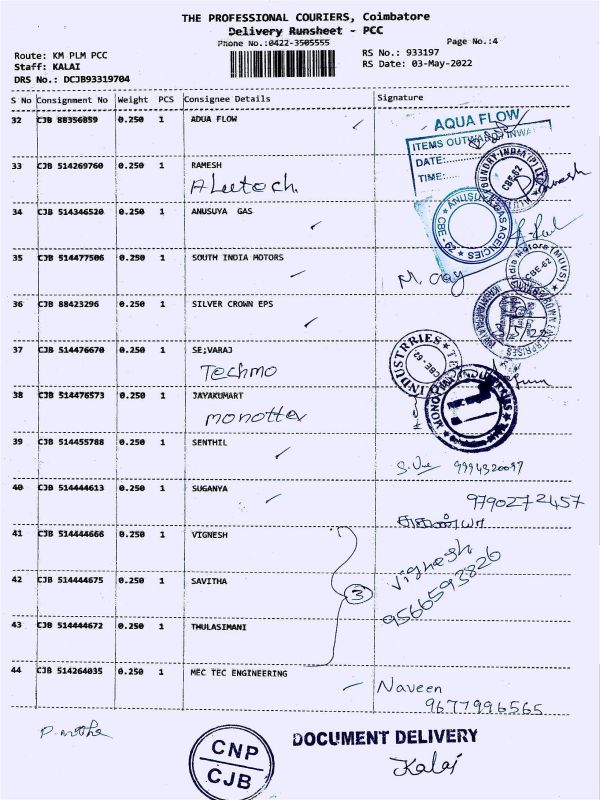 THE PROFESSIONAL COURIERS, Coimbatore
Delivery Runsheet - PCC
Phone No.:0422-3505555
Page No.:4
Route: KM PLM PCC
RS No.: 933197
Staff: KALAI
RS Date: 03-May-2022
DRS No.: DCJB93319704
S No Consignment No Weight PCS Consignee Details Signature
32 CJB 88356859 0.250 1 ADUA FLOW
AQUA FLOW
ITEMS OUTWARD INWA
DATE:
TIME:
33 CJB 514269760 0.250 1 RAMESH
ALeetech
FOUNDRY-INDM (P) LT
CBE-62
34 CJB 514346520 0.250 1 ANUSUYA GAS
ANUSUYA GAS AGENCIES
CBE - 29
35 CJB 514477506 0.250 1 SOUTH INDIA MOTORS
India Motors (MUVS)
CBE-62
36 CJB 88423296 0.250 1 SILVER CROWN EPS
37 CJB 514476670 0.250 1 SE;VARAJ
Techmo
INDUSTRRIES
CBE-62
38 CJB 514476573 0.250 1 JAYAKUMART
monotter
39 CJB 514455788 0.250 1 SENTHIL
9994320097
40 CJB 514444613 0.250 1 SUGANYA
9790272457
41 CJB 514444666 0.250 1 VIGNESH
Vignesh
9566593826
42 CJB 514444675 0.250 1 SAVITHA
3
43 CJB 514444672 0.250 1 THULASIMANI
44 CJB 514264035 0.250 1 MEC TEC ENGINEERING
Naveen
9677996565
CNP
CJB
DOCUMENT DELIVERY
Kalai